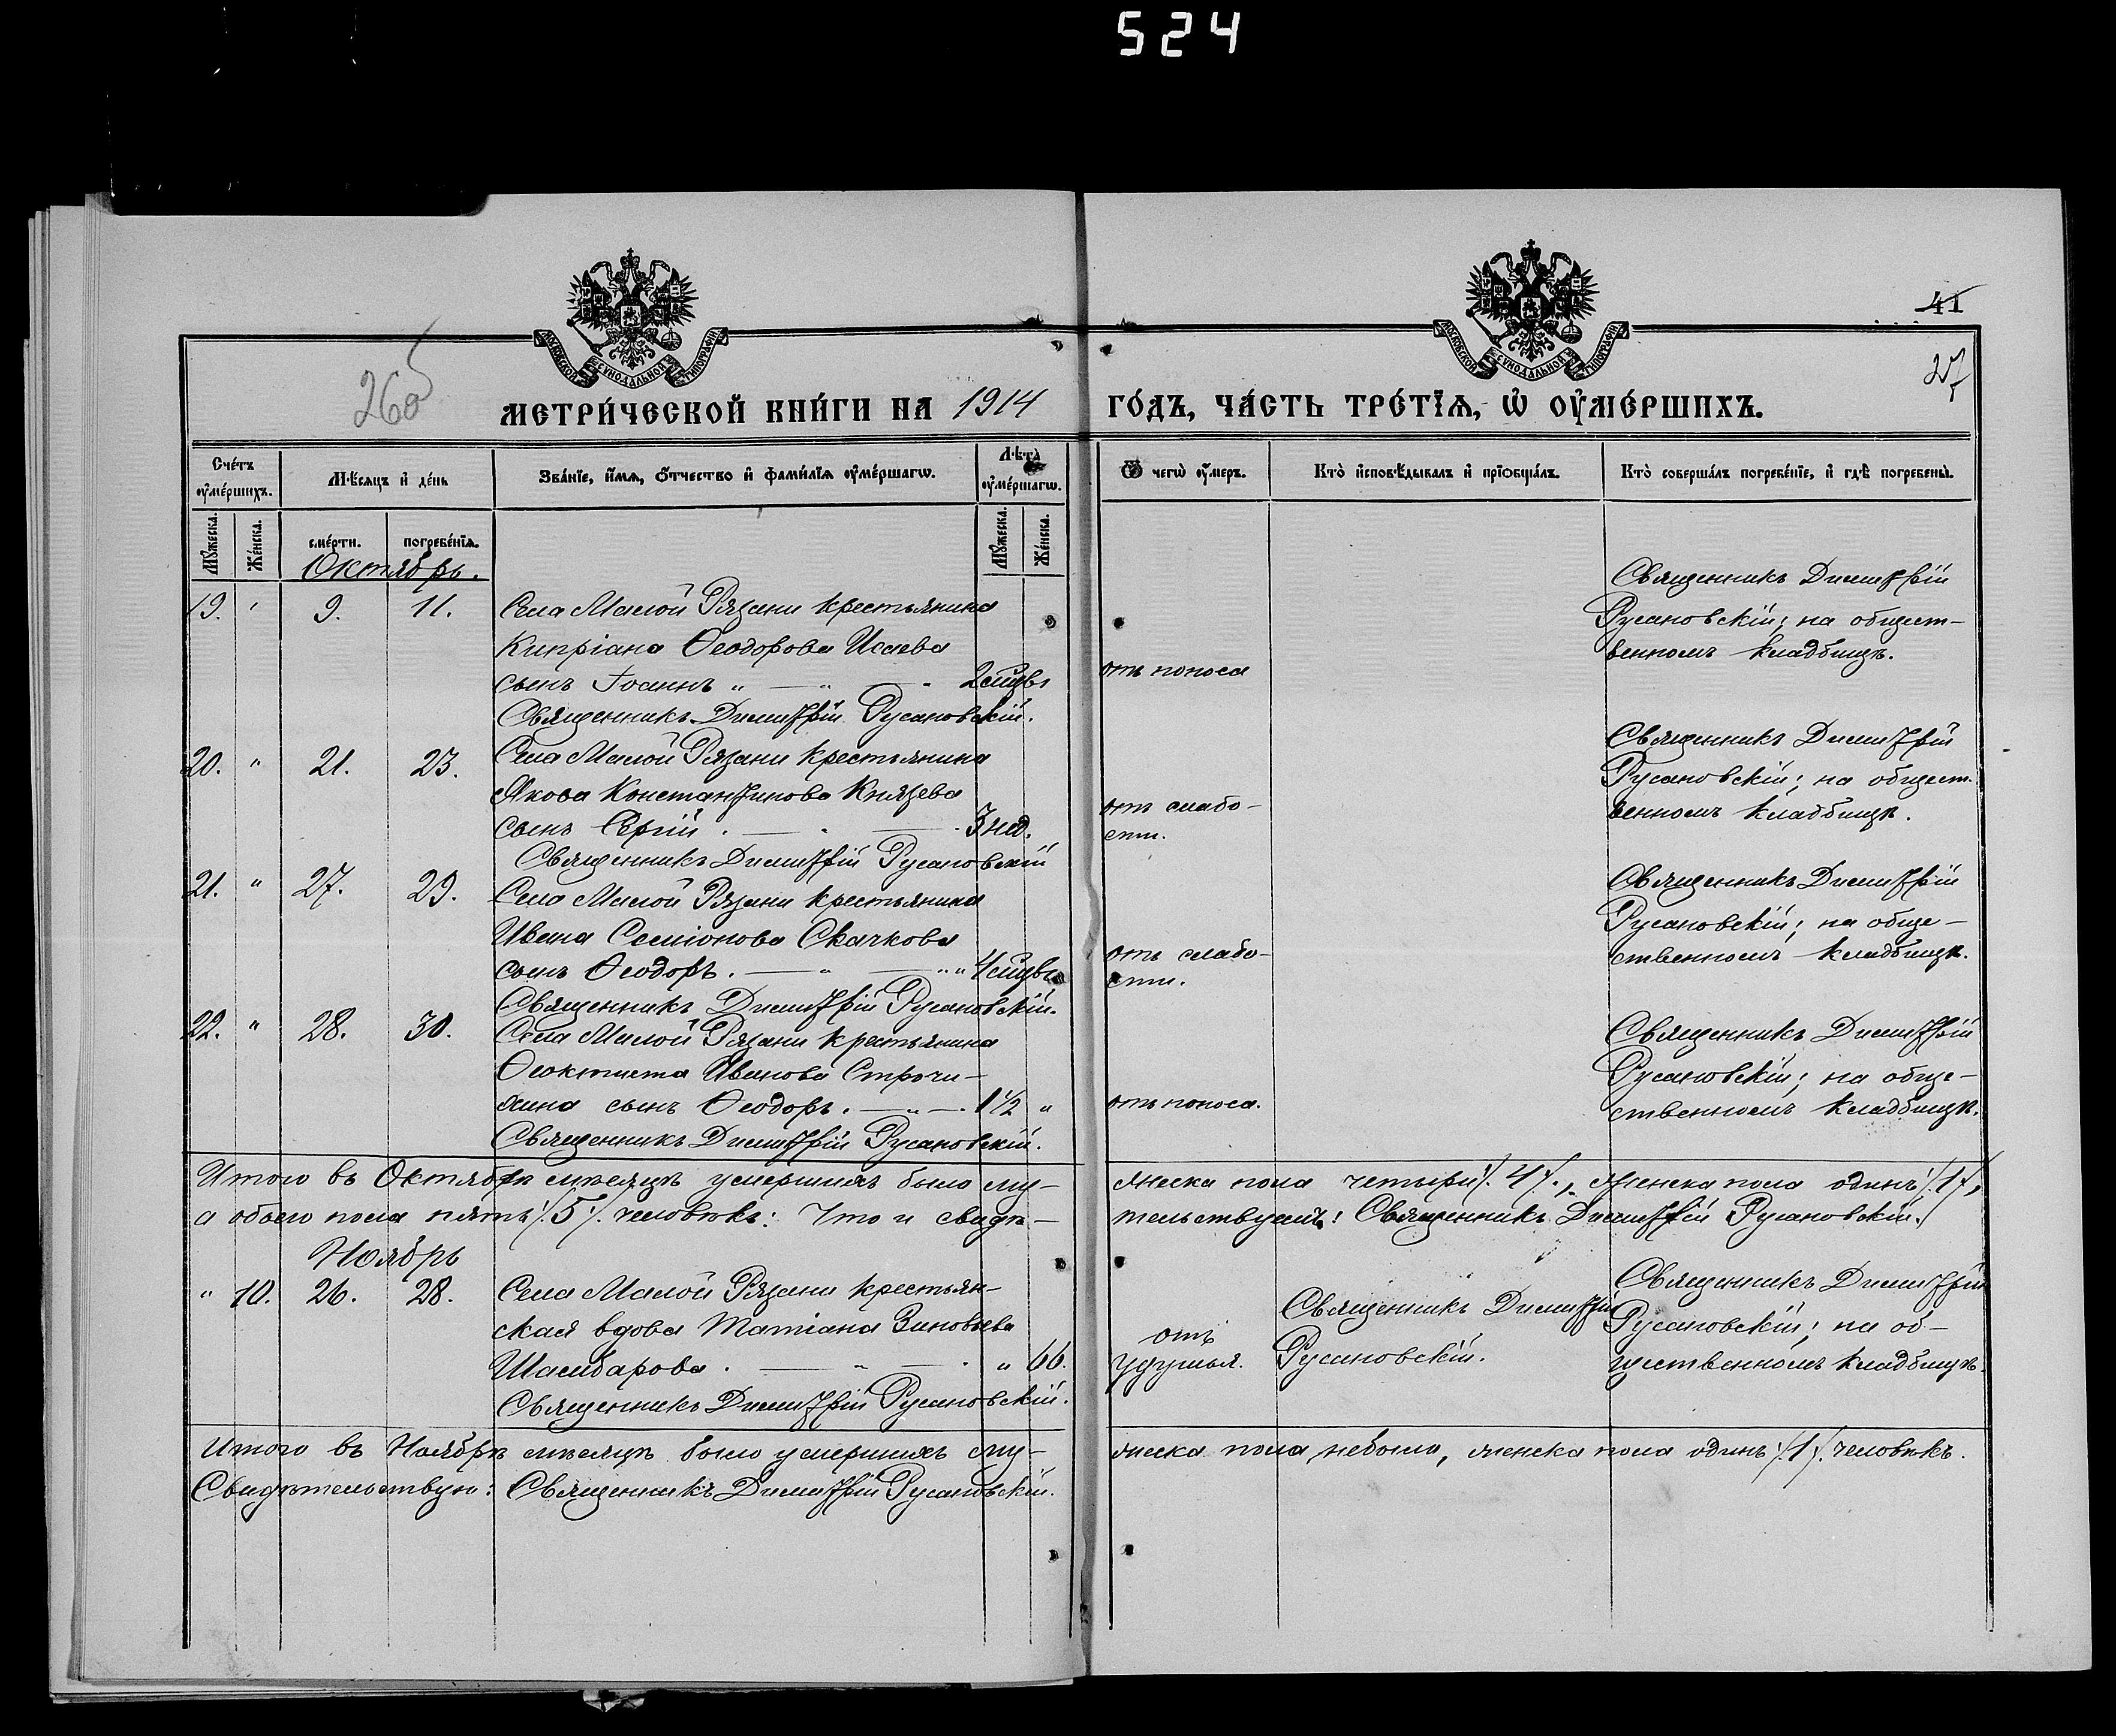 524
МОСКОВСКОЙ СѴНОДАЛЬНОЙ ТИПОГРАФІИ
МОСКОВСКОЙ СѴНОДАЛЬНОЙ ТИПОГРАФІИ
41
27
260
МЕТРИ́ЧЕСКОЙ КНИ́ГИ НА 1914 ГО́ДЪ, ЧА́СТЬ ТРЕ́ТІѦ, Ѡ ОУ҆МЕ́РШИХЪ.
Сче́тъ оумéршихъ.
Мѣ́сѧцъ и де́нь
Зва́нїе, и҆́мѧ, ѻ҆́тчество и фами́лїѧ оумéршагѡ.
Лѣ́та оумéршагѡ.
Ѿ чегѡ̀ оу҆́меръ.
Кто̀ и҆сповѣ́дывалъ и прїѡбща́лъ.
Кто̀ соверша́лъ погребе́нїе, и гдѣ̀ погребены̀.
Мꙋ́жеска.
Же́нска.
сме́рти.
погребе́нїѧ.
Мꙋ́жеска.
Же́нска.
Октябрь.
19. " 9. 11. Села Малой Рязани крестьянина
Кипріана Ѳеодорова Исаева
сынъ Іоаннъ " — " — " 2 мѣс.
Священникъ Димитрій Русановскій.
отъ поноса
Священникъ Димитрій
Русановскій; на общест-
венномъ кладбищѣ.
20. " 21. 23. Села Малой Рязани крестьянина
Якова Константинова Князева
сынъ Сергій . — . — . 3 нед.
Священникъ Димитрій Русановскій
отъ слабо-
сти.
Священникъ Димитрій
Русановскій; на общест-
венномъ кладбищѣ.
21. " 27. 29. Села Малой Рязани крестьянина
Ивана Семіонова Скачкова
сынъ Ѳеодоръ. — " — " " 4
Священникъ Димитрій Русановскій.
отъ слабо-
сти.
Священникъ Димитрій
Русановскій; на обще-
ственномъ кладбищѣ.
22. " 28. 30. Села Малой Рязани крестьянина
Ѳеоктиста Иванова Строчи-
лина сынъ Ѳеодоръ. — " — . 1 ½ "
Священникъ Димитрій Русановскій.
отъ поноса.
Священникъ Димитрій
Русановскій; на обще-
ственномъ кладбищѣ.
Итого въ Октябрѣ мѣсяцѣ умершихъ было му- жеска пола четыри /. 4 /., женска пола одинъ /. 1 /.,
а обоего пола пять /. 5 /. человѣкъ: Что и свидѣ- тельствуемъ: Священникъ Димитрій Русановскій.
Ноябрь
" 10. 26. 28. Села Малой Рязани крестьян-
ская вдова Татіана Зиновьева
Шамбарова . — " — . " 66.
Священникъ Димитрій Русановскій.
отъ
удушья.
Священникъ Димитрій
Русановскій.
Священникъ Димитрій
Русановскій; на об-
щественномъ кладбищѣ.
Итого въ Ноябрѣ мѣсяцѣ было умершихъ му- жеска пола небыло, женска пола одинъ /. 1 /. человѣкъ.
Свидѣтельствую: Священникъ Димитрій Русановскій.